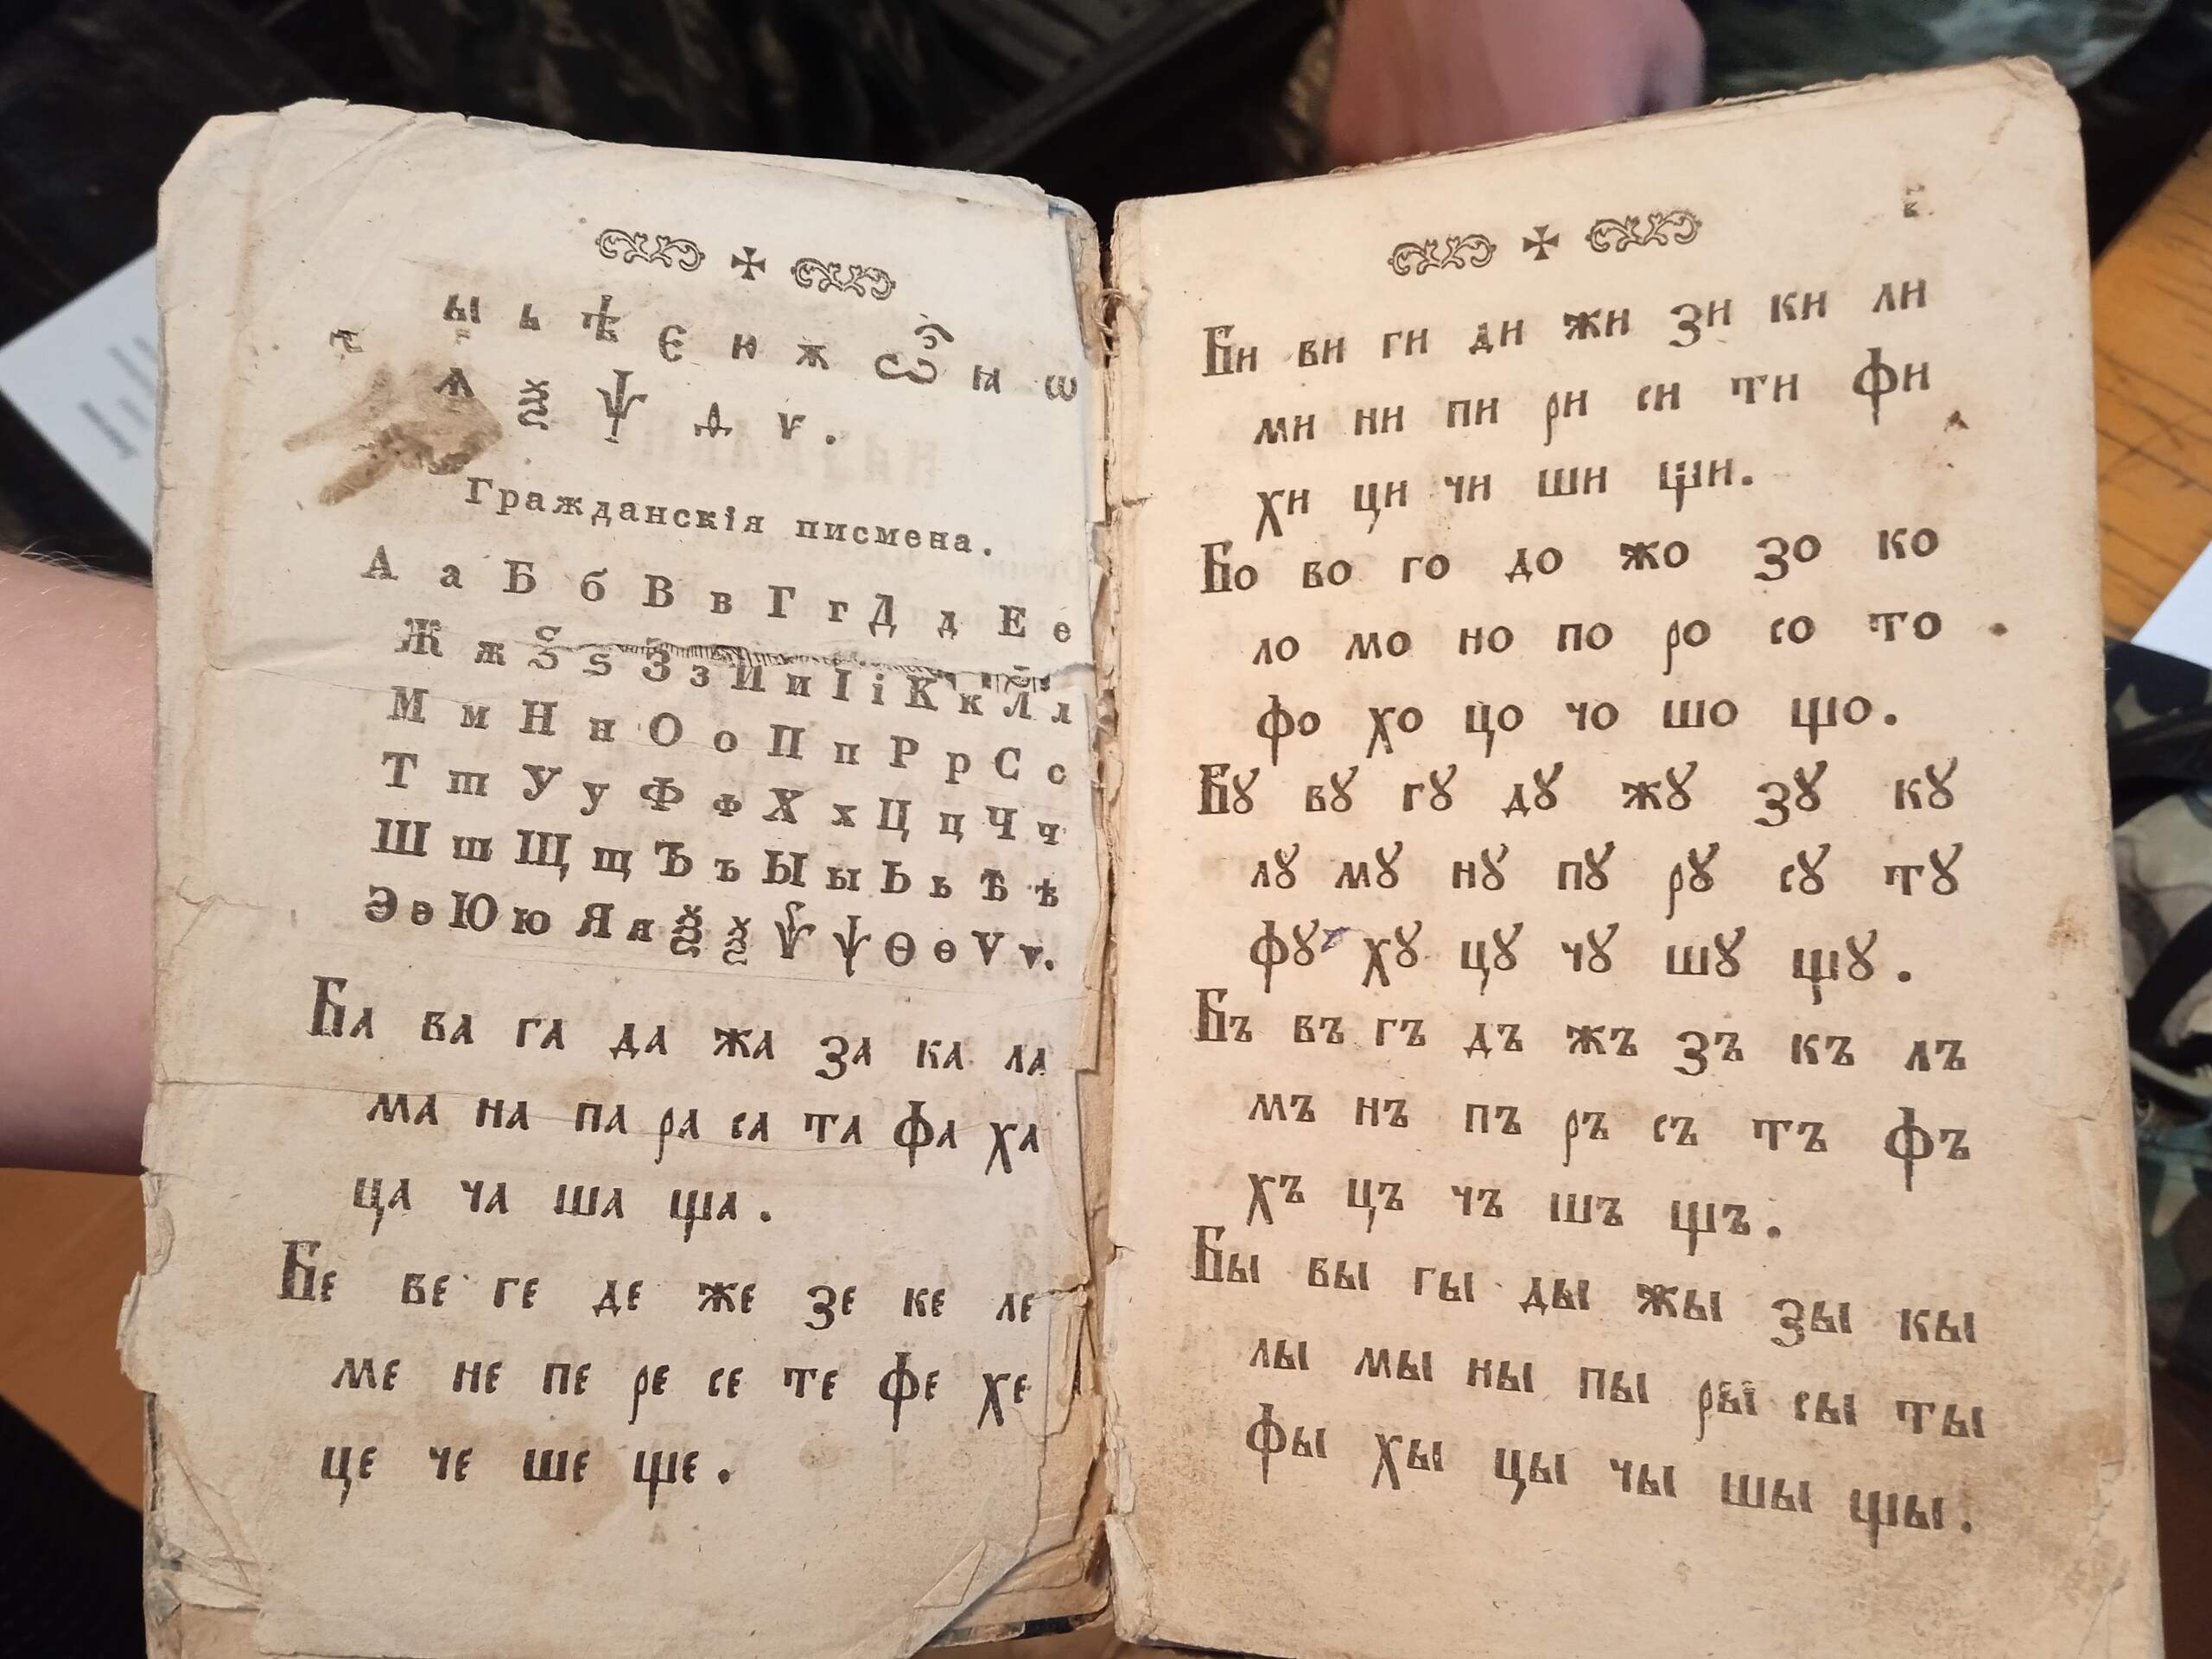 ы ь ѣ є ю ѫ ѽ ꙗ ѡ
ѧ ѯ ѱ ѳ ѵ.
Гражданскія писмена.
А а Б б В в Г г Д д Е е
Ж ж Ѕ ѕ З з И и І і К к Л л
М м Н н О о П п Р р С с
Т т У у Ф ф Х х Ц ц Ч ч
Ш ш Щ щ Ъ ъ Ы ы Ь ь Ѣ ѣ
Э э Ю ю Я я Ѯ ѯ Ѱ ѱ Ѳ ѳ Ѵ ѵ.
Ба ва га да жа за ка ла
ма на па ра са та фа ха
ца ча ша ща.
Бе ве ге де же зе ке ле
ме не пе ре се те фе хе
це че ше ще.
Би ви ги ди жи зи ки ли
ми ни пи ри си ти фи
хи ци чи ши щи.
Бо во го до жо зо ко
ло мо но по ро со то
фо хо цо чо шо що.
Бꙋ вꙋ гꙋ дꙋ жꙋ зꙋ кꙋ
лꙋ мꙋ нꙋ пꙋ рꙋ сꙋ тꙋ
фꙋ хꙋ цꙋ чꙋ шꙋ щꙋ.
Бъ въ гъ дъ жъ зъ къ лъ
мъ нъ пъ ръ съ тъ фъ
хъ цъ чъ шъ щъ.
Бы вы гы ды жы зы кы
лы мы ны пы ры сы ты
фы хы цы чы шы щы.